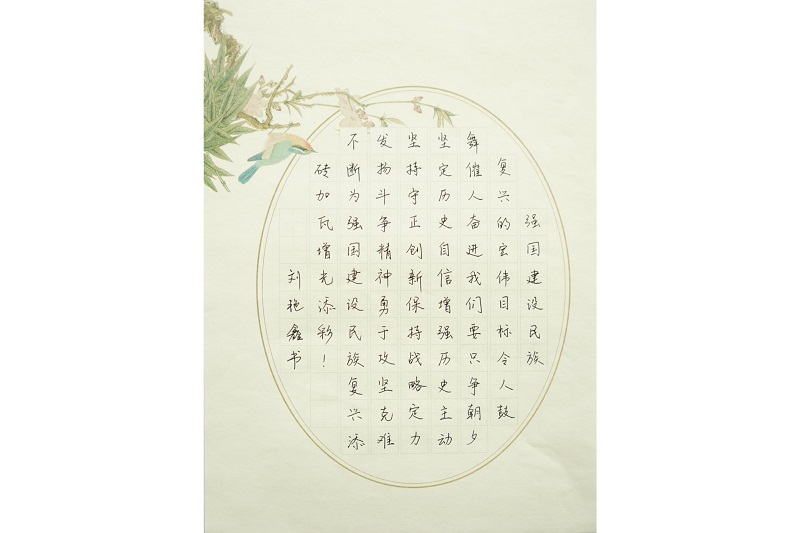 强国建设民族
复兴的宏伟目标令人鼓
舞催人奋进我们要只争朝夕
坚定历史自信增强历史主动
坚持守正创新保持战略定力
发扬斗争精神勇于攻坚克难
不断为强国建设民族复兴添
砖加瓦增光添彩！
刘艳鑫书